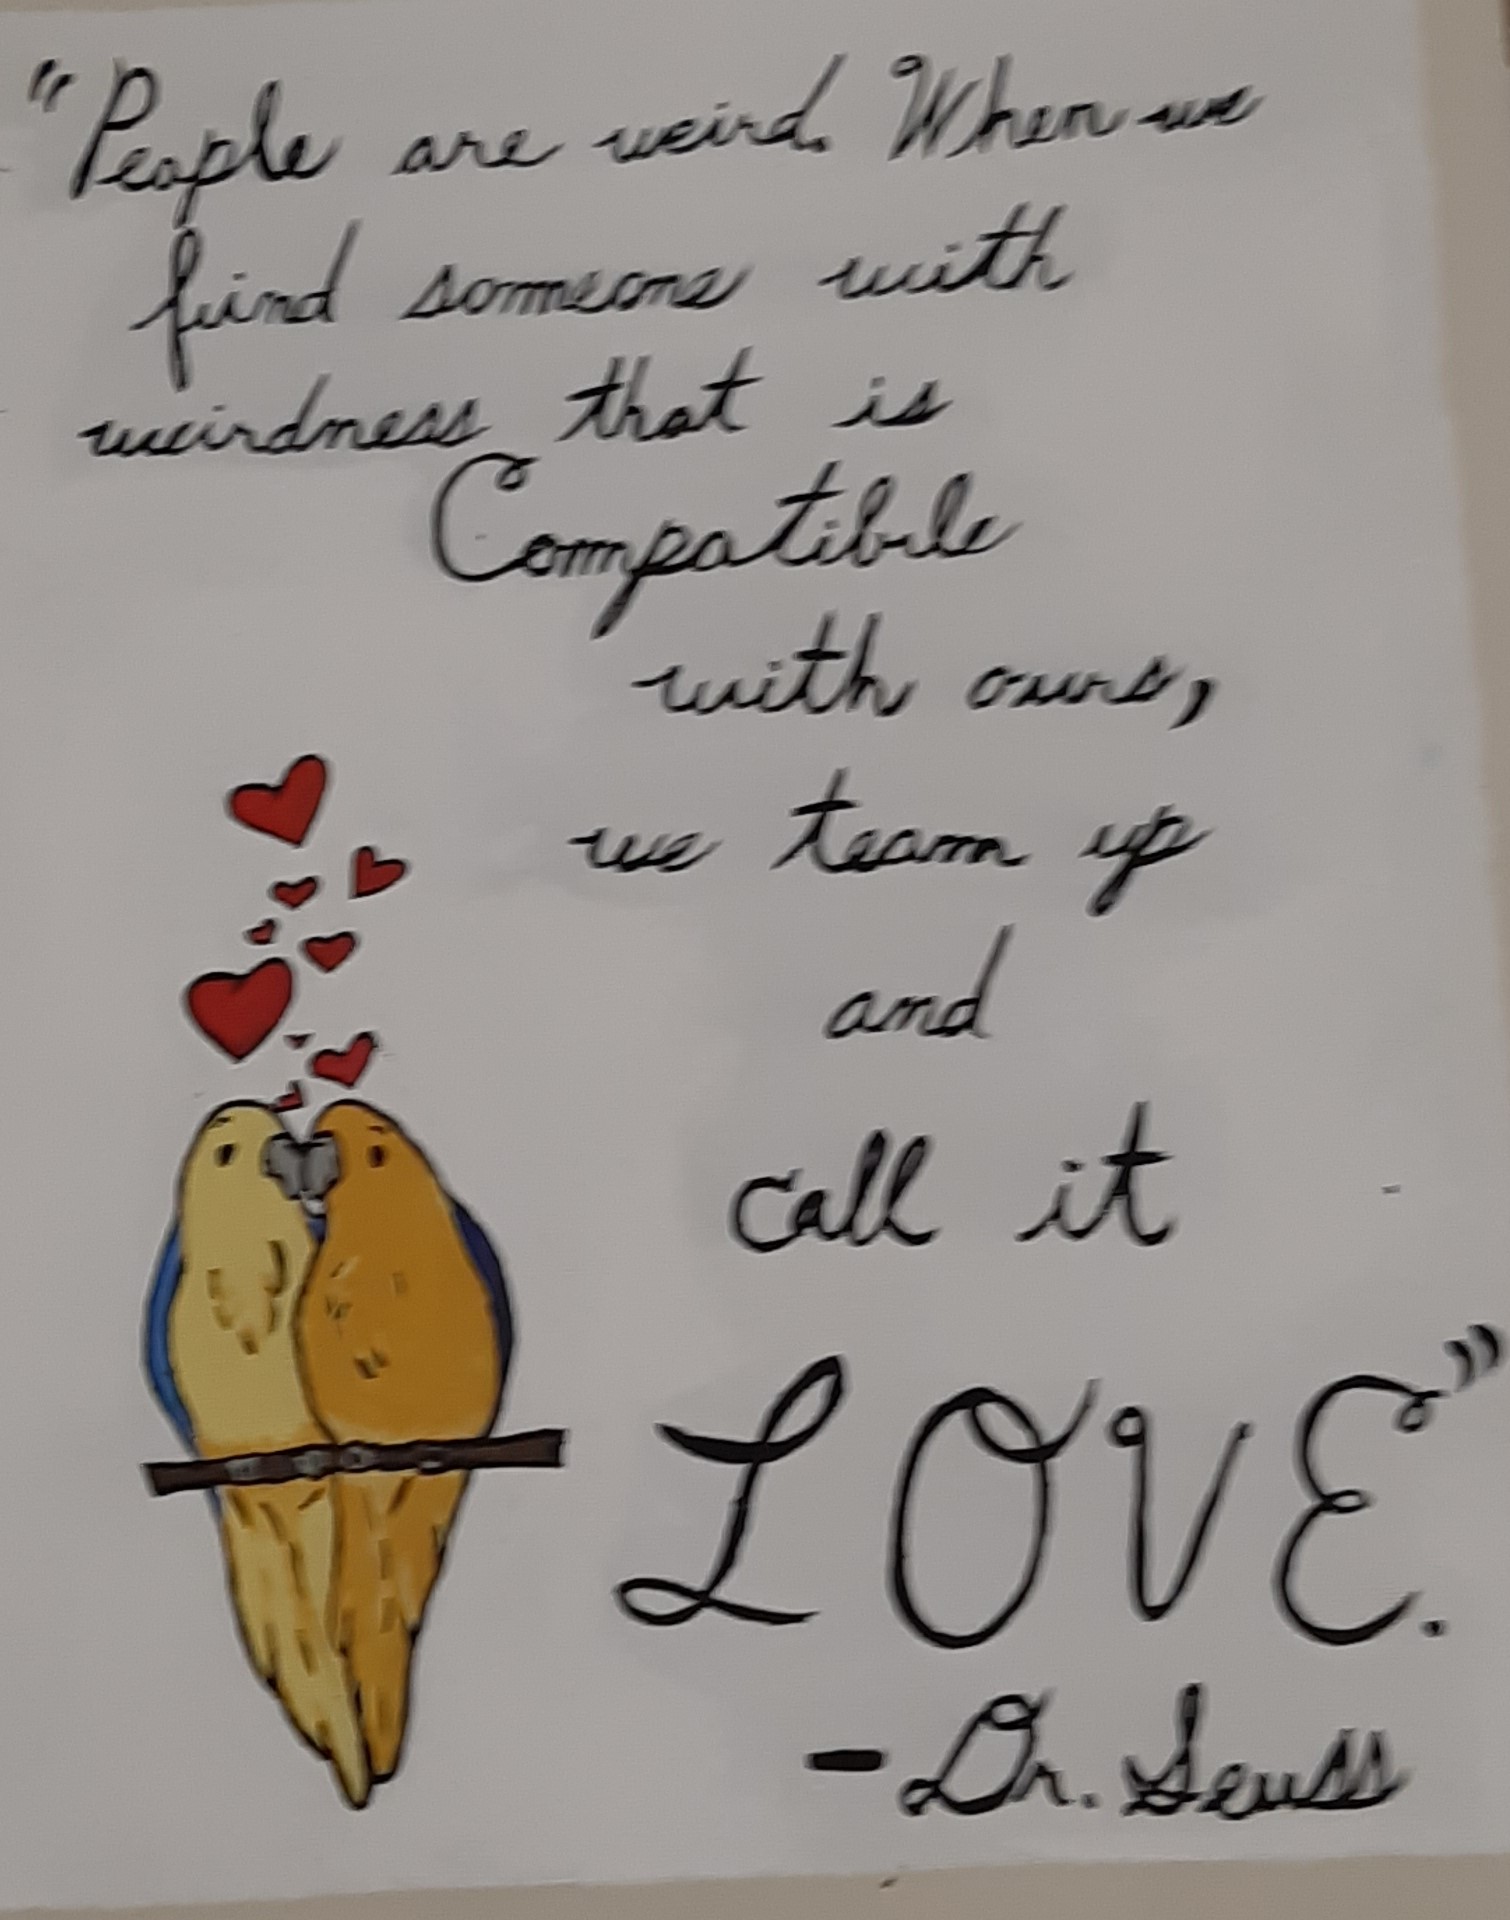 "People are weird. When we
find someone with
weirdness that is
Compatible
with ours,
we team up
and
call it
LOVE."
-Dr. Seuss